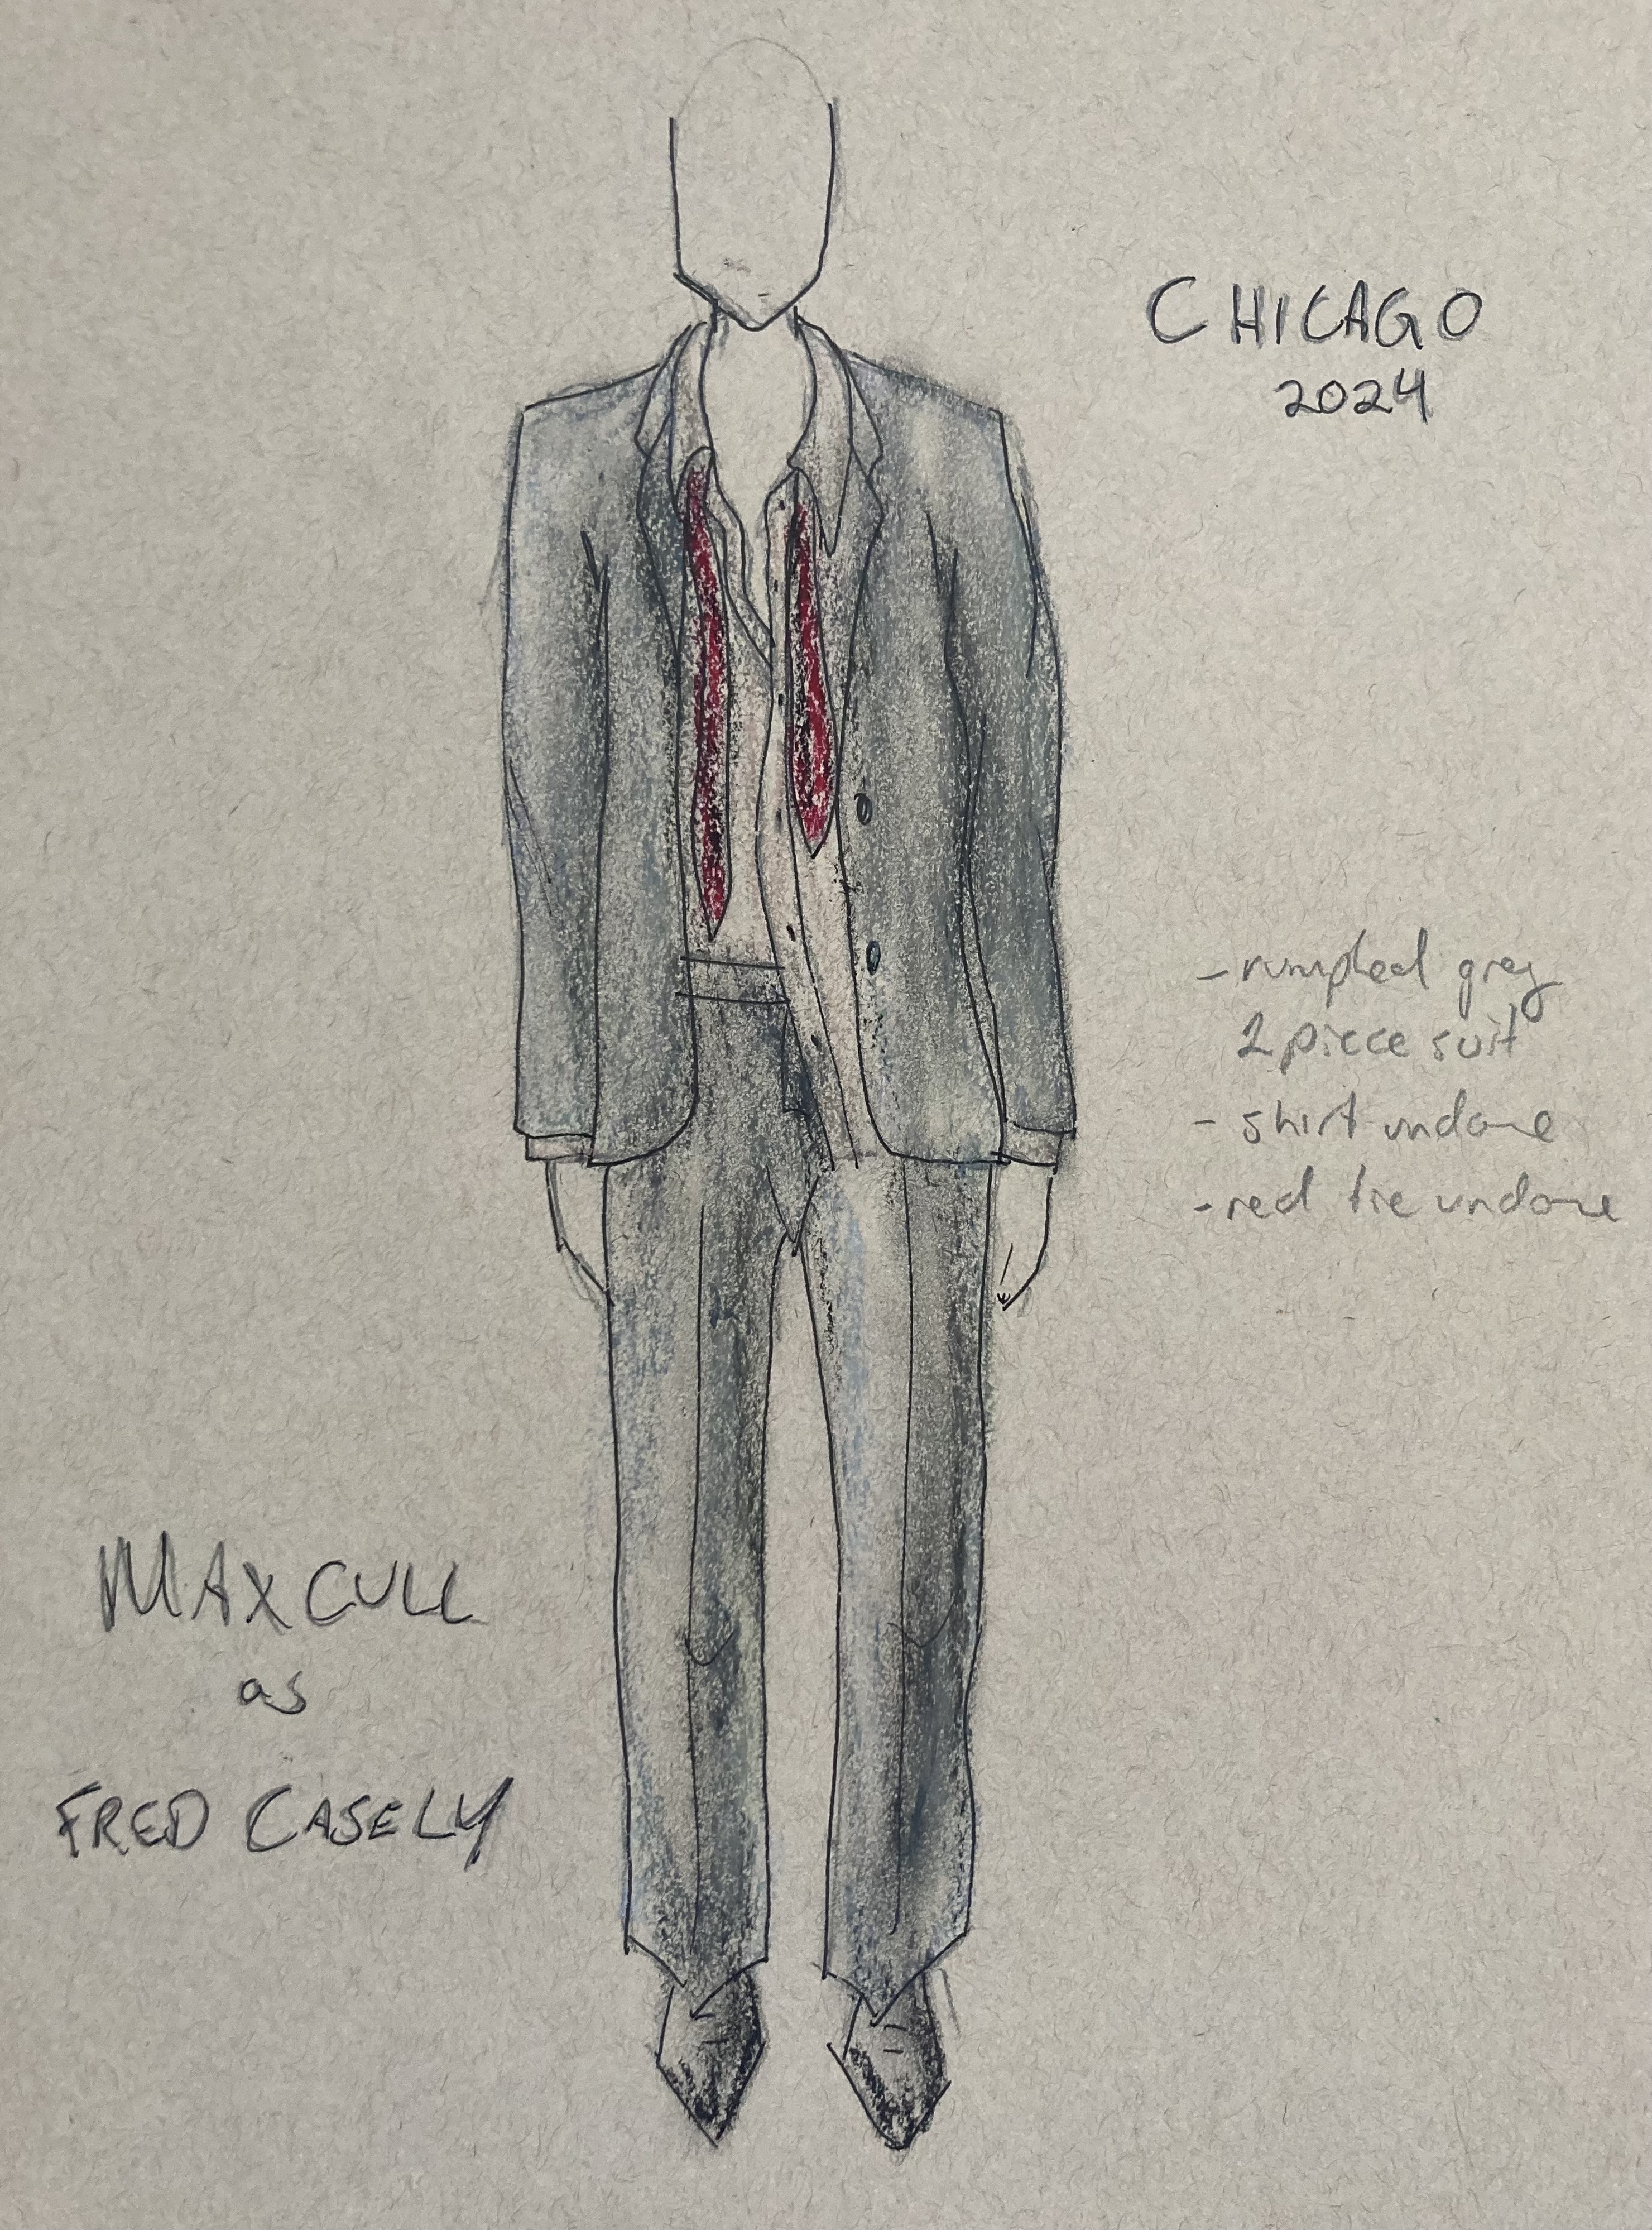 CHICAGO
2024
- rumpled grey
2 piece suit
- shirt undone
- red tie undone
MAX CULL
as
FRED CASELY